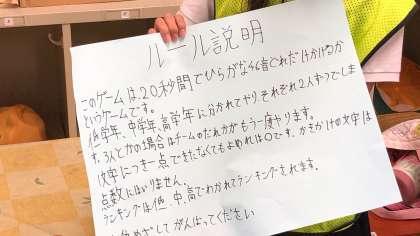 ルール説明
このゲームは20秒間でひらがな46音どれだけかけるか
というゲームです。
低学年、中学年、高学年に分かれてやりそれぞれ2人ずつでしま
す。3人とかの場合はゲームのだれかがもう一度やります。
1文字につき一点できたなくてもよめれば〇です。かきかけの文字は
点数にはいりません。
ランキングは低、中、高でわかれてランキングされます。
めざしてがんばってください